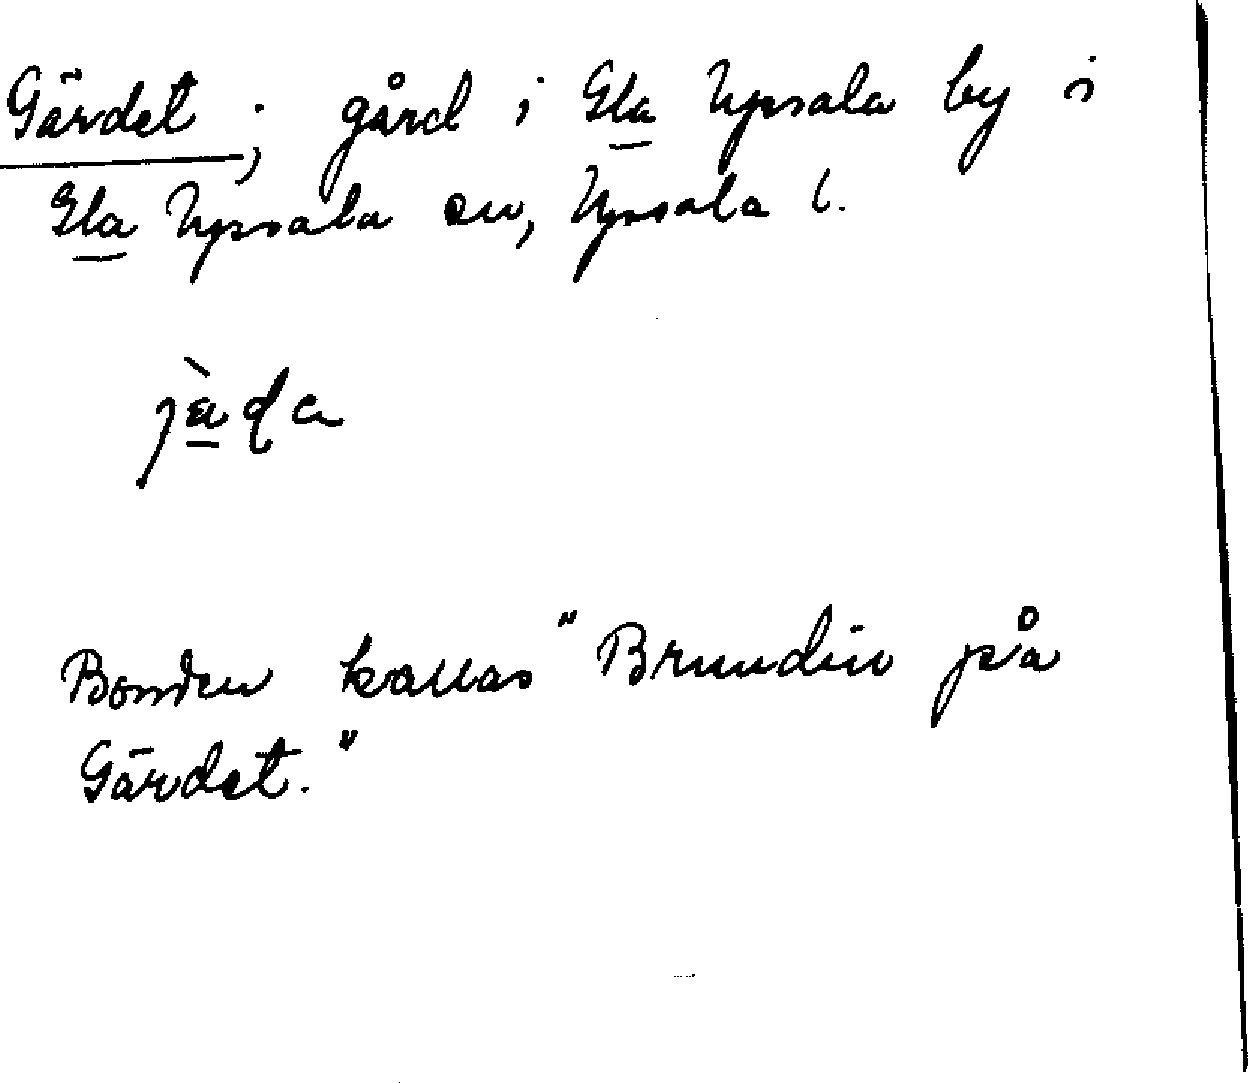 Gärdet; gård i Gla Upsala by i
Gla Upsala sn, Upsala l.
jä̀da
Bonden kallas "Brundin på
Gärdet."